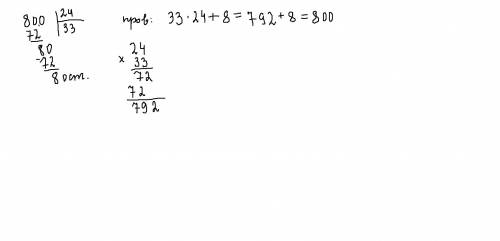 800 | 24
72 | 33
80
-72
8 ост.
пров: 33 · 24 + 8 = 792 + 8 = 800
24
× 33
72
72
792